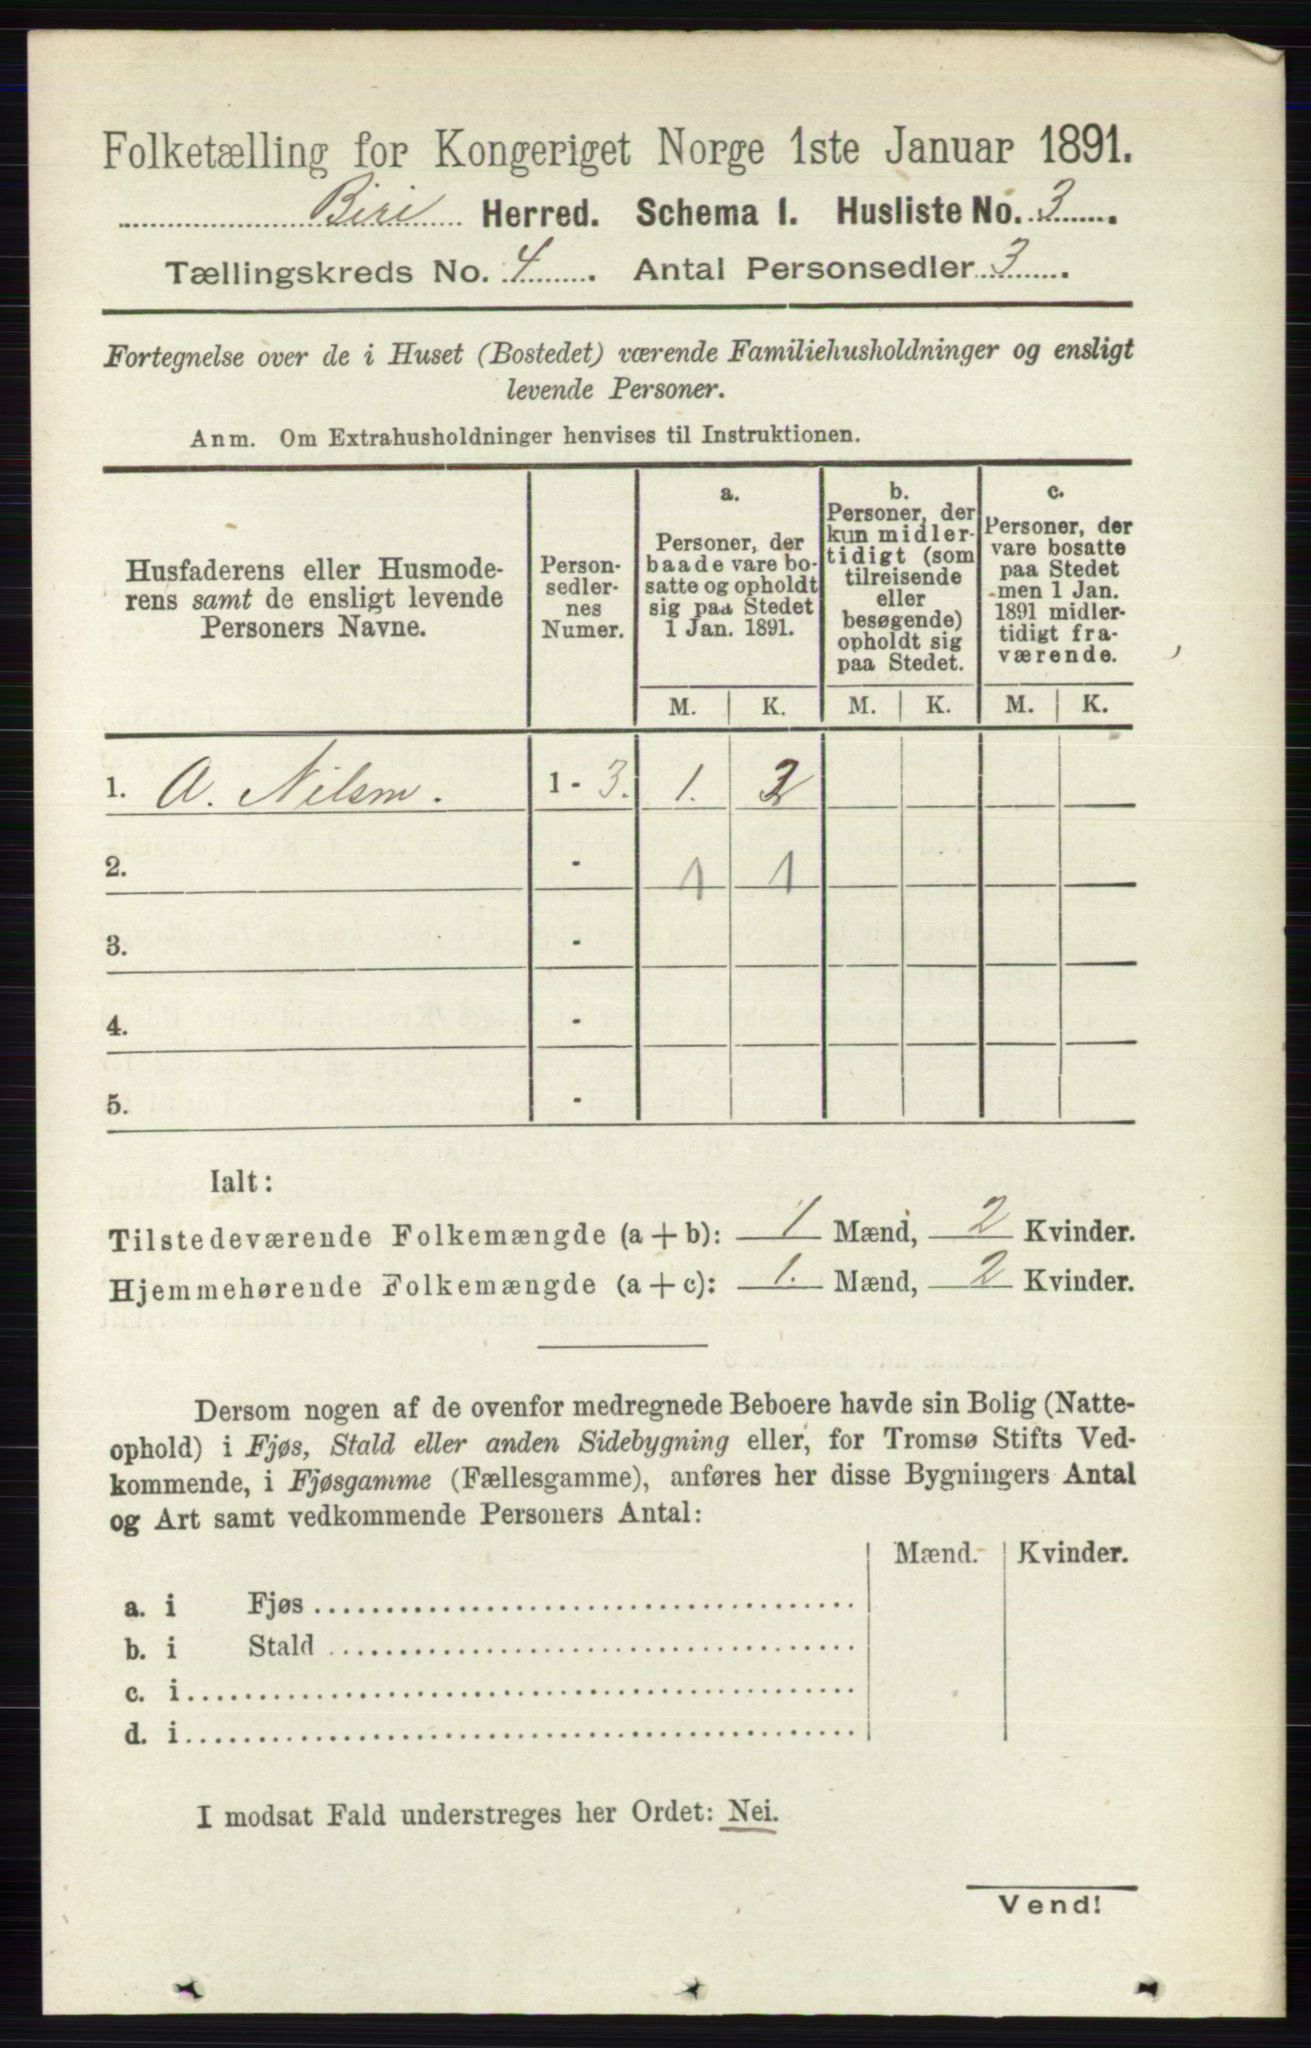 Folketælling for Kongeriget Norge 1ste Januar 1891.
Biri Herred. Schema 1. Husliste No. 3
Tællingskreds No. 4. Antal Personsedler 3.
Fortegnelse over de i Huset (Bostedet) værende Familiehusholdninger og ensligt
levende Personer.
Anm. Om Extrahusholdninger henvises til Instruktionen.
Husfaderens eller Husmode-
rens samt de ensligt levende
Personers Navne.
Person-
sedler-
nes
Numer.
a.
Personer, der
baade vare bo-
satte og opholdt
sig paa Stedet
1 Jan. 1891.
b.
Personer, der
kun midler-
tidigt (som
tilreisende
eller
besøgende)
opholdt sig
paa Stedet.
c.
Personer, der
vare bosatte
paa Stedet
men 1 Jan.
1891 midler-
tidigt fra-
værende.
M. K. M. K. M. K.
1. A. Nilsen. 1 - 3. 1. 2
2. - 1 1
3. -
4. -
5. -
Ialt:
Tilstedeværende Folkemængde (a + b): 1 Mænd, 2 Kvinder.
Hjemmehørende Folkemængde (a + c): 1. Mænd, 2 Kvinder.
Dersom nogen af de ovenfor medregnede Beboere havde sin Bolig (Natte-
ophold) i Fjøs, Stald eller anden Sidebygning eller, for Tromsø Stifts Ved-
kommende, i Fjøsgamme (Fællesgamme), anføres her disse Bygningers Antal
og Art samt vedkommende Personers Antal:
Mænd. Kvinder.
a. i Fjøs
b. i Stald
c. i
d. i
I modsat Fald understreges her Ordet: Nei.
Vend!